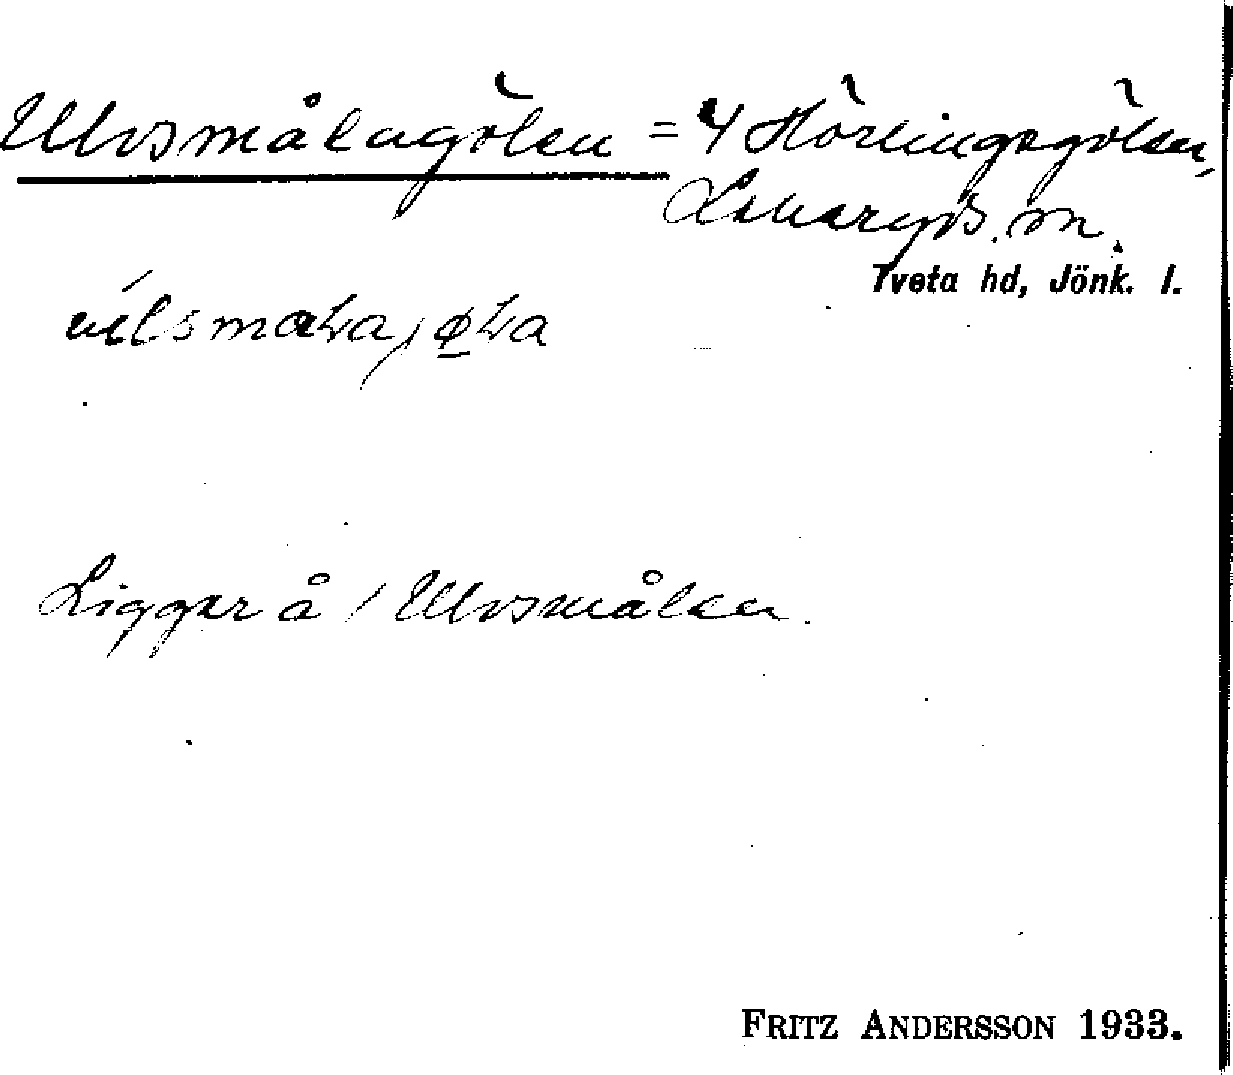 Ulvsmålagölen = 4 Hörlingsgölen,
Lekeryds sn.
Tveta hd, Jönk. l.
Ligger å / Ulvsmålen.
FRITZ ANDERSSON 1933.